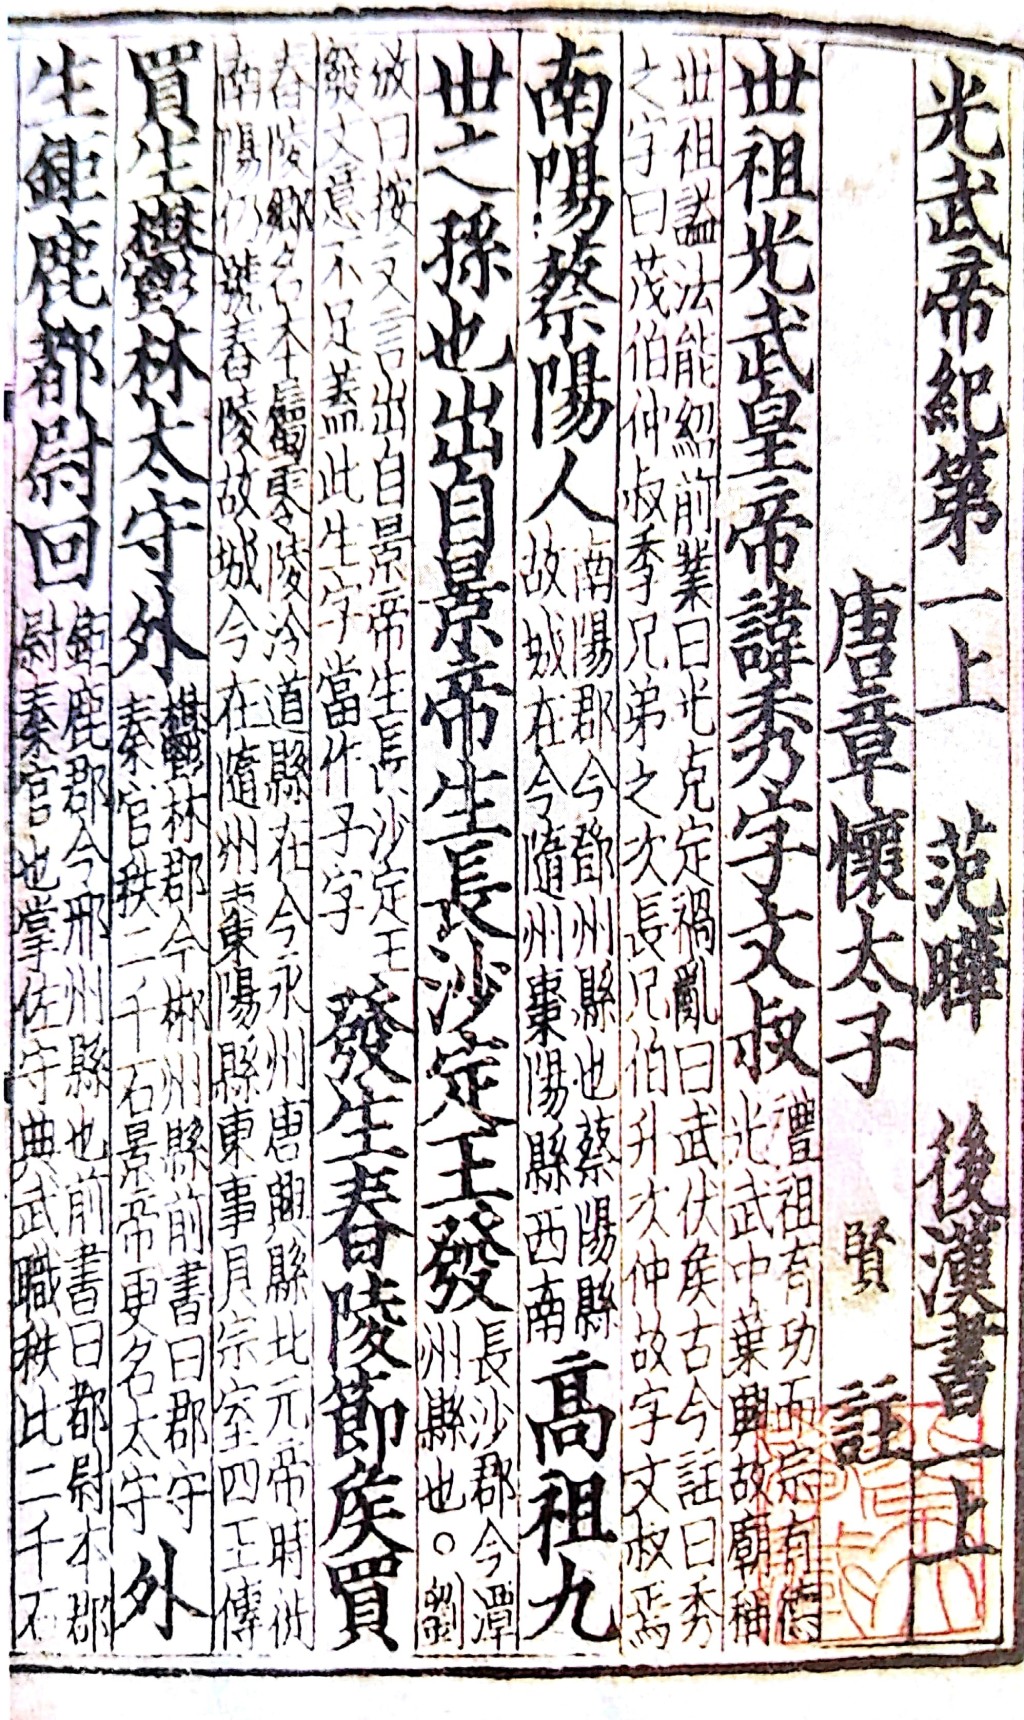 光武帝紀第一上　范曄　後漢書一上
唐章懷太子　賢　註
世祖光武皇帝諱秀字文叔禮祖有功而宗有德光武中葉興故廟稱
世祖諡法能紹前業曰光克定禍亂曰武伏侯古今註曰秀之字曰茂伯仲叔季兄弟之次長兄伯升次仲故字文叔焉
南陽蔡陽人南陽郡今鄧州縣也蔡陽縣故城在今隨州棗陽縣西南高祖九
世之孫也出自景帝生長沙定王發長沙郡今潭州縣也○劉
攽曰按文言出自景帝生長沙定王發文意不足蓋此生字當作子字發生舂陵節侯買
舂陵鄉名本屬零陵泠道縣在今永州唐興縣北元帝時徙南陽仍號舂陵故城今在隨州棗陽縣東事具宗室四王傳
買生鬱林太守外鬱林郡今郴州縣前書曰郡守秦官秩二千石景帝更名太守外
生鉅鹿都尉回鉅鹿郡今邢州縣也前書曰都尉本郡尉秦官也掌佐守典武職秩比二千石